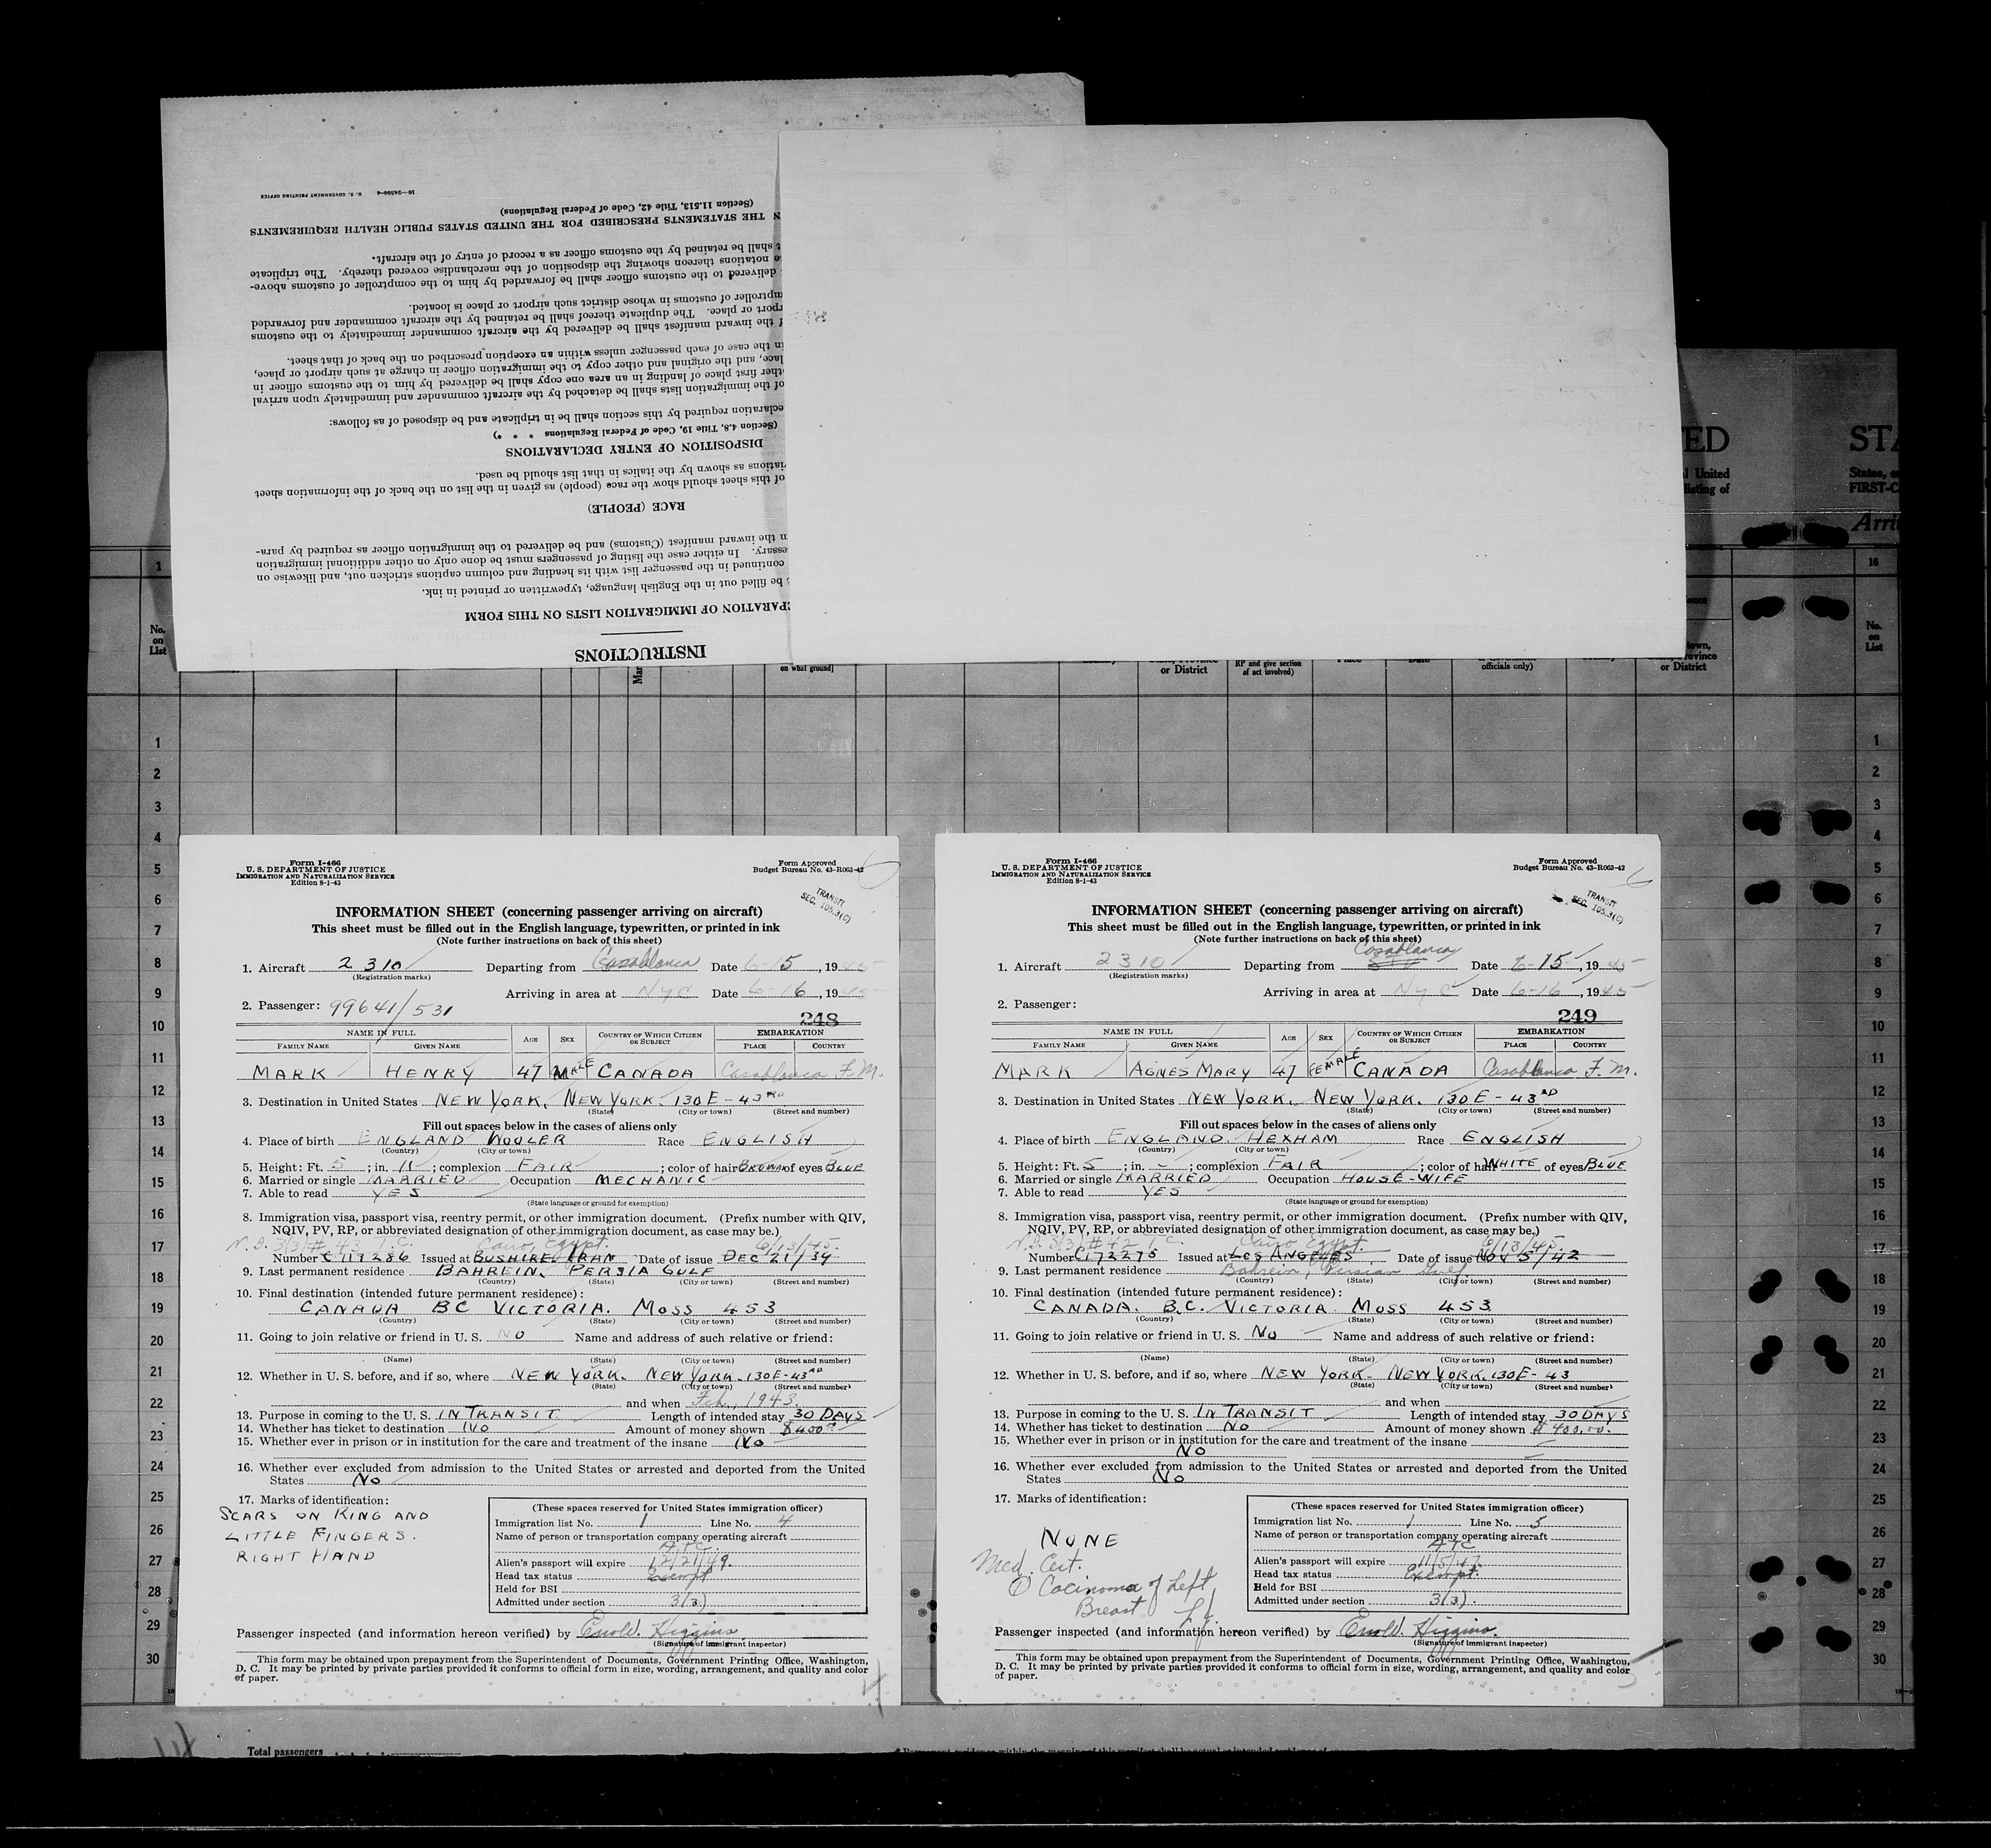 INSTRUCTIONS
PARATION OF IMMIGRATION LISTS ON THIS FORM
be filled out in the English language, typewritten or printed in ink.
continued in the passenger list with its heading and column captions stricken out, and likewise on
essary. In either case the listing of passengers must be done only on other additional immigration
n the inward manifest (Customs) and be delivered to the immigration officer as required by para-
RACE (PEOPLE)
of this sheet should show the race (people) as given in the list on the back of the information sheet
riations as shown by the italics in that list should be used.
DISPOSITION OF ENTRY DECLARATIONS
(Section 4.8, Title 19, Code of Federal Regulations * * *)
eclaration required by this section shall be in triplicate and be disposed of as follows:
of the immigration lists shall be detached by the aircraft commander and immediately upon arrival
ther first place of landing in an area one copy shall be delivered by him to the customs officer in
lace, and the original and other copy to the immigration officer in charge at such airport or place,
in the case of each passenger unless within an exception prescribed on the back of that sheet.
f the inward manifest shall be delivered by the aircraft commander immediately to the customs
rport or place. The duplicate thereof shall be retained by the aircraft commander and forwarded
mptroller of customs in whose district such airport or place is located.
delivered to the customs officer shall be forwarded by him to the comptroller of customs above-
e notations thereon showing the disposition of the merchandise covered thereby. The triplicate
t shall be retained by the customs officer as a record of entry of the aircraft.
N THE STATEMENTS PRESCRIBED FOR THE UNITED STATES PUBLIC HEALTH REQUIREMENTS
(Section 11.513, Title 42, Code of Federal Regulations)
16—24598-4 U. S. GOVERNMENT PRINTING OFFICE
ED
STA
l United
listing of
States, o
FIRST-C
Arri
1
16
No.
on
List
Mar
on what ground]
or District
RP and give section
of act involved)
Place
Date
officials only)
town,
Province
or District
No.
on
List
1
2
3
4
5
6
7
8
9
10
11
12
13
14
15
16
17
18
19
20
21
22
23
24
25
26
27
28
29
30
Form I-466
U. S. DEPARTMENT OF JUSTICE
IMMIGRATION AND NATURALIZATION SERVICE
Edition 8-1-43
Form Approved
Budget Bureau No. 43-R063-42
TRANSIT
SEC. 105.3(C)
INFORMATION SHEET (concerning passenger arriving on aircraft)
This sheet must be filled out in the English language, typewritten, or printed in ink
(Note further instructions on back of this sheet)
1. Aircraft 2310 Departing from Casablanca Date 6-15, 1945
(Registration marks)
Arriving in area at NYC Date 6-16, 1945
2. Passenger: 99641/531
248
NAME IN FULL AGE SEX COUNTRY OF WHICH CITIZEN OR SUBJECT EMBARKATION
FAMILY NAME GIVEN NAME PLACE COUNTRY
MARK HENRY 47 MALE CANADA Casablanca F.M.
3. Destination in United States NEW YORK. NEW YORK. 130 E-43RD
(State) (City or town) (Street and number)
Fill out spaces below in the cases of aliens only
4. Place of birth ENGLAND WOOLER Race ENGLISH
(Country) (City or town)
5. Height: Ft. 5; in. 11; complexion FAIR; color of hair BROWN of eyes BLUE
6. Married or single MARRIED Occupation MECHANIC
7. Able to read YES
(State language or ground for exemption)
8. Immigration visa, passport visa, reentry permit, or other immigration document. (Prefix number with QIV,
NQIV, PV, RP, or abbreviated designation of other immigration document, as case may be.)
N.I. 3(3) # 43 T.C. Cairo, Egypt. 6/13/45.
Number C 117286 Issued at BUSHIRE. IRAN Date of issue DEC 21/39
9. Last permanent residence BAHREIN. PERSIA GULF
(Country) (State) (City or town) (Street and number)
10. Final destination (intended future permanent residence):
CANADA BC VICTORIA. MOSS 453
(Country) (State) (City or town) (Street and number)
11. Going to join relative or friend in U. S. NO Name and address of such relative or friend:
(Name) (State) (City or town) (Street and number)
12. Whether in U. S. before, and if so, where NEW YORK. NEW YORK. 130E-43RD
(State) (City or town) (Street and number)
and when Feb., 1943.
13. Purpose in coming to the U. S. IN TRANSIT Length of intended stay 30 DAYS
14. Whether has ticket to destination NO Amount of money shown $400
15. Whether ever in prison or in institution for the care and treatment of the insane NO
16. Whether ever excluded from admission to the United States or arrested and deported from the United
States NO
17. Marks of identification:
SCARS ON RING AND
LITTLE FINGERS.
RIGHT HAND
(These spaces reserved for United States immigration officer)
Immigration list No. 1 Line No. 4
Name of person or transportation company operating aircraft
ATC.
Alien's passport will expire 12/21/49.
Head tax status Exempt
Held for BSI
Admitted under section 3(3)
Passenger inspected (and information hereon verified) by Enold. Higgins.
(Signature of immigrant inspector)
This form may be obtained upon prepayment from the Superintendent of Documents, Government Printing Office, Washington,
D. C. It may be printed by private parties provided it conforms to official form in size, wording, arrangement, and quality and color
of paper.
Form I-466
U. S. DEPARTMENT OF JUSTICE
IMMIGRATION AND NATURALIZATION SERVICE
Edition 8-1-43
Form Approved
Budget Bureau No. 43-R063-42
TRANSIT
SEC. 105.3(C)
INFORMATION SHEET (concerning passenger arriving on aircraft)
This sheet must be filled out in the English language, typewritten, or printed in ink
(Note further instructions on back of this sheet)
Casablanca
1. Aircraft 2310 Departing from Date 6-15-, 1945
(Registration marks)
Arriving in area at NYC Date 6-16, 1945
2. Passenger:
249
NAME IN FULL AGE SEX COUNTRY OF WHICH CITIZEN OR SUBJECT EMBARKATION
FAMILY NAME GIVEN NAME PLACE COUNTRY
MARK AGNES MARY 47 FEMALE CANADA Casablanca F.M.
3. Destination in United States NEW YORK. NEW YORK. 130 E-43RD
(State) (City or town) (Street and number)
Fill out spaces below in the cases of aliens only
4. Place of birth ENGLAND. HEXHAM Race ENGLISH
(Country) (City or town)
5. Height: Ft. 5; in. -; complexion FAIR; color of hair WHITE of eyes BLUE
6. Married or single MARRIED Occupation HOUSE-WIFE
7. Able to read YES
(State language or ground for exemption)
8. Immigration visa, passport visa, reentry permit, or other immigration document. (Prefix number with QIV,
NQIV, PV, RP, or abbreviated designation of other immigration document, as case may be.)
N.I. 3(3) # 42 T.C. Cairo, Egypt. 6/13/45.
Number C 172275 Issued at LOS ANGELES Date of issue NOV 5/42
9. Last permanent residence Bahrein, Persian Gulf
(Country) (State) (City or town) (Street and number)
10. Final destination (intended future permanent residence):
CANADA. B.C. VICTORIA MOSS 453
(Country) (State) (City or town) (Street and number)
11. Going to join relative or friend in U. S. NO Name and address of such relative or friend:
(Name) (State) (City or town) (Street and number)
12. Whether in U. S. before, and if so, where NEW YORK- NEW YORK. 130E-43
(State) (City or town) (Street and number)
and when
13. Purpose in coming to the U. S. IN TRANSIT Length of intended stay 30 DAYS
14. Whether has ticket to destination NO Amount of money shown $400.00.
15. Whether ever in prison or in institution for the care and treatment of the insane
NO
16. Whether ever excluded from admission to the United States or arrested and deported from the United
States NO
17. Marks of identification:
NONE
Med. Cert.
Cacinoma of Left
Breast
(These spaces reserved for United States immigration officer)
Immigration list No. 1 Line No. 5
Name of person or transportation company operating aircraft
ATC
Alien's passport will expire 11/5/47.
Head tax status Exempt.
Held for BSI
Admitted under section 3(3).
Passenger inspected (and information hereon verified) by Enold. Higgins.
(Signature of immigrant inspector)
This form may be obtained upon prepayment from the Superintendent of Documents, Government Printing Office, Washington,
D. C. It may be printed by private parties provided it conforms to official form in size, wording, arrangement, and quality and color
of paper.
1
2
3
4
5
6
7
8
9
10
11
12
13
14
15
16
17
18
19
20
21
22
23
24
25
26
27
28
29
30
Total passengers